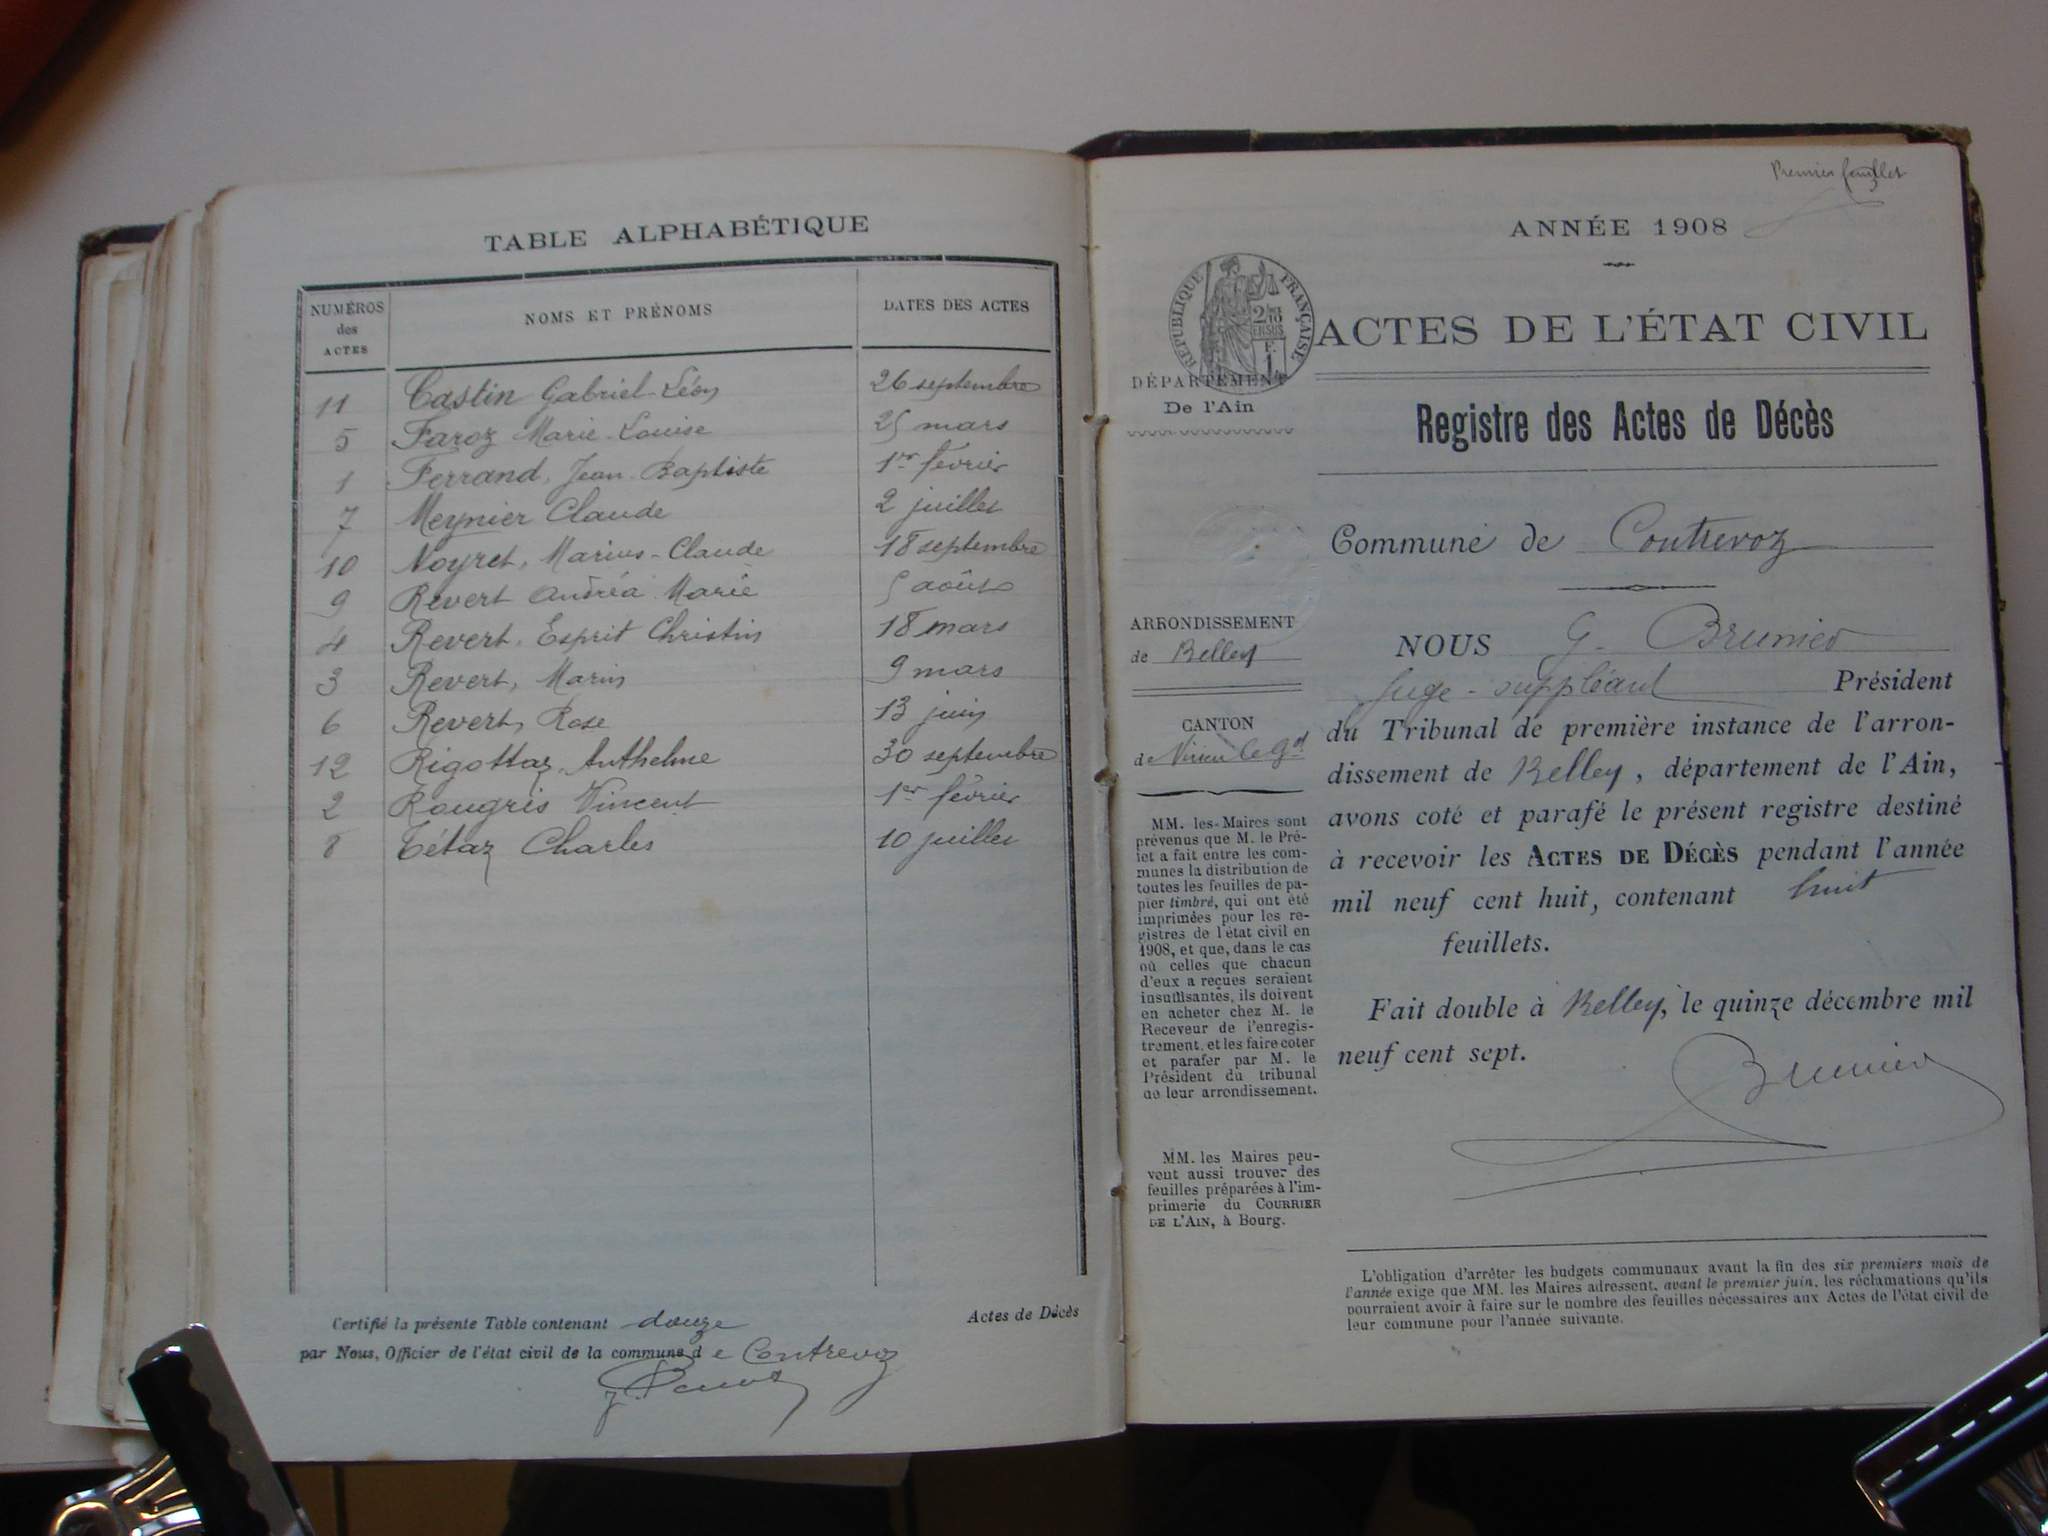 TABLE ALPHABÉTIQUE
NUMÉROS des ACTES NOMS ET PRÉNOMS DATES DES ACTES
11 Castin Gabriel-Léon 26 septembre
5 Faroz Marie-Louise 25 mars
1 Ferrand, Jean-Baptiste 1er février
7 Meynier Claude 2 juillet
10 Noyret, Marius-Claude 18 septembre
9 Revert Andréa Marie 5 août
4 Revert, Esprit Christin 18 mars
3 Revert, Marin 9 mars
6 Revert, Rose 13 juin
12 Rigottaz, Anthelme 30 septembre
2 Rougris Vincent 1er février
8 Tétaz Charles 10 juillet
Certifié la présente Table contenant douze Actes de Décès
par Nous, Officier de l'état civil de la commune de Contrevoz
Premier feuillet
ANNÉE 1908
RÉPUBLIQUE FRANÇAISE
2/10 EN SUS
1 F.
ACTES DE L'ÉTAT CIVIL
DÉPARTEMENT
De l'Ain
Registre des Actes de Décès
Commune de Contrevoz
ARRONDISSEMENT
de Belley
CANTON
de Virieu le Gd
MM. les Maires sont
prévenus que M. le Pré-
fet a fait entre les com-
munes la distribution de
toutes les feuilles de pa-
pier timbré, qui ont été
imprimées pour les re-
gistres de l'état civil en
1908, et que, dans le cas
où celles que chacun
d'eux a reçues seraient
insuffisantes, ils doivent
en acheter chez M. le
Receveur de l'enregis-
trement, et les faire coter
et parafer par M. le
Président du tribunal
de leur arrondissement.
MM. les Maires peu-
vent aussi trouver des
feuilles préparées à l'im-
primerie du COURRIER
DE L'AIN, à Bourg.
NOUS G. Brunier
Juge-suppléant Président
du Tribunal de première instance de l'arron-
dissement de Belley, département de l'Ain,
avons coté et parafé le présent registre destiné
à recevoir les ACTES DE DÉCÈS pendant l'année
mil neuf cent huit, contenant huit
feuillets.
Fait double à Belley, le quinze décembre mil
neuf cent sept.
Brunier
L'obligation d'arrêter les budgets communaux avant la fin des six premiers mois de
l'année exige que MM. les Maires adressent, avant le premier juin, les réclamations qu'ils
pourraient avoir à faire sur le nombre des feuilles nécessaires aux Actes de l'état civil de
leur commune pour l'année suivante.